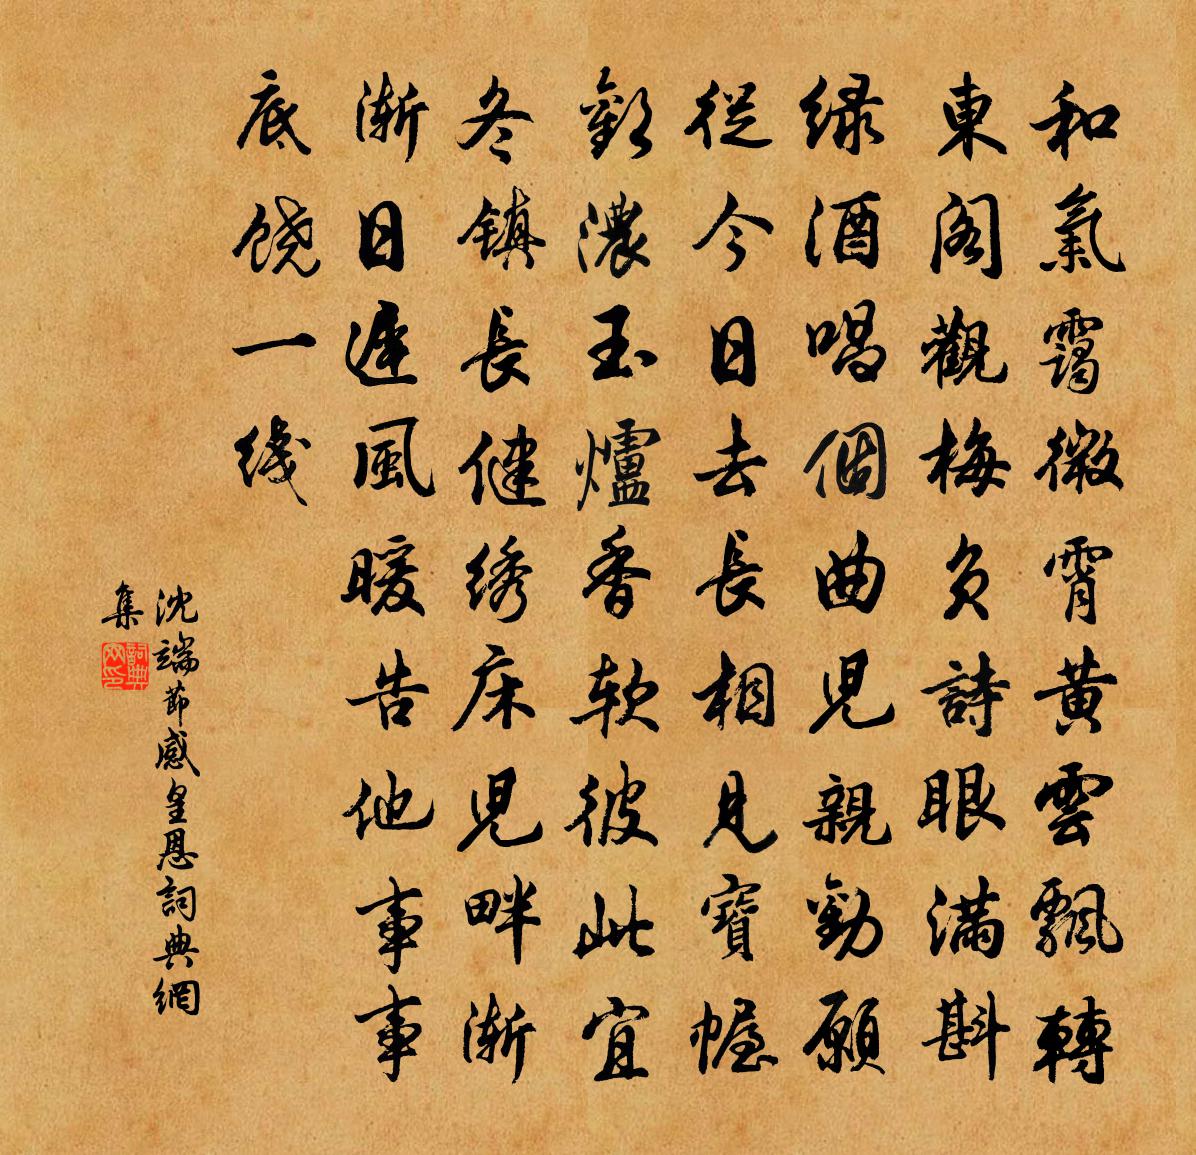 和氣靄微霄黄雲飄轉
東閣觀梅負詩眼滿斟
绿酒唱個曲兒親勸願
從今日去長相見寶幄
歡濃玉爐香軟彼此宜
冬镇長健绣床兒畔漸
漸日遲風暖告他事事
底饶一线
沈端節感皇恩詞典網
集
詞典
网印